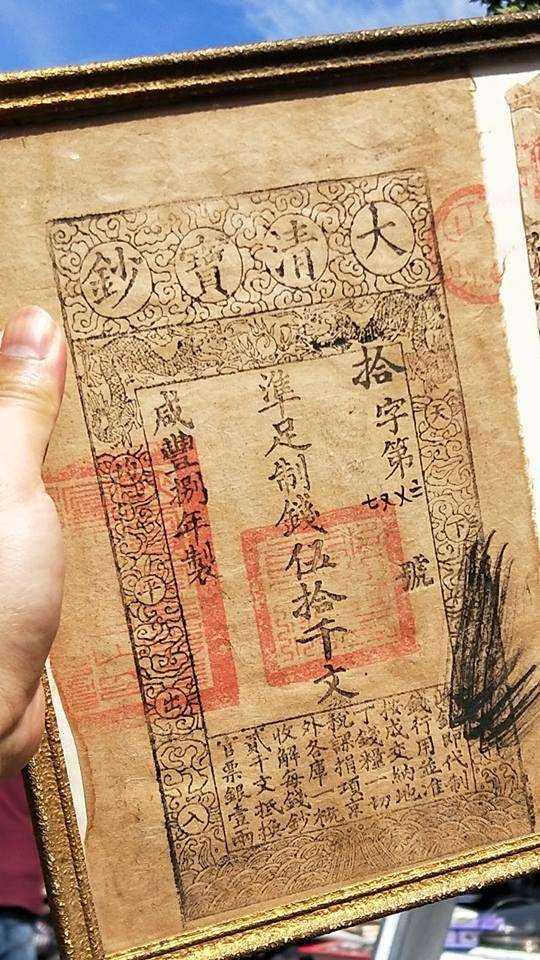 大清寶鈔
天下
拾字第號
準足制錢伍拾千文
咸豐捌年製
均平出入
鈔即代制
錢行用並准
按成交納地
丁錢糧一切
稅課捐項京
外各庫一概
收解每錢鈔
貳千文抵換
官票銀壹兩